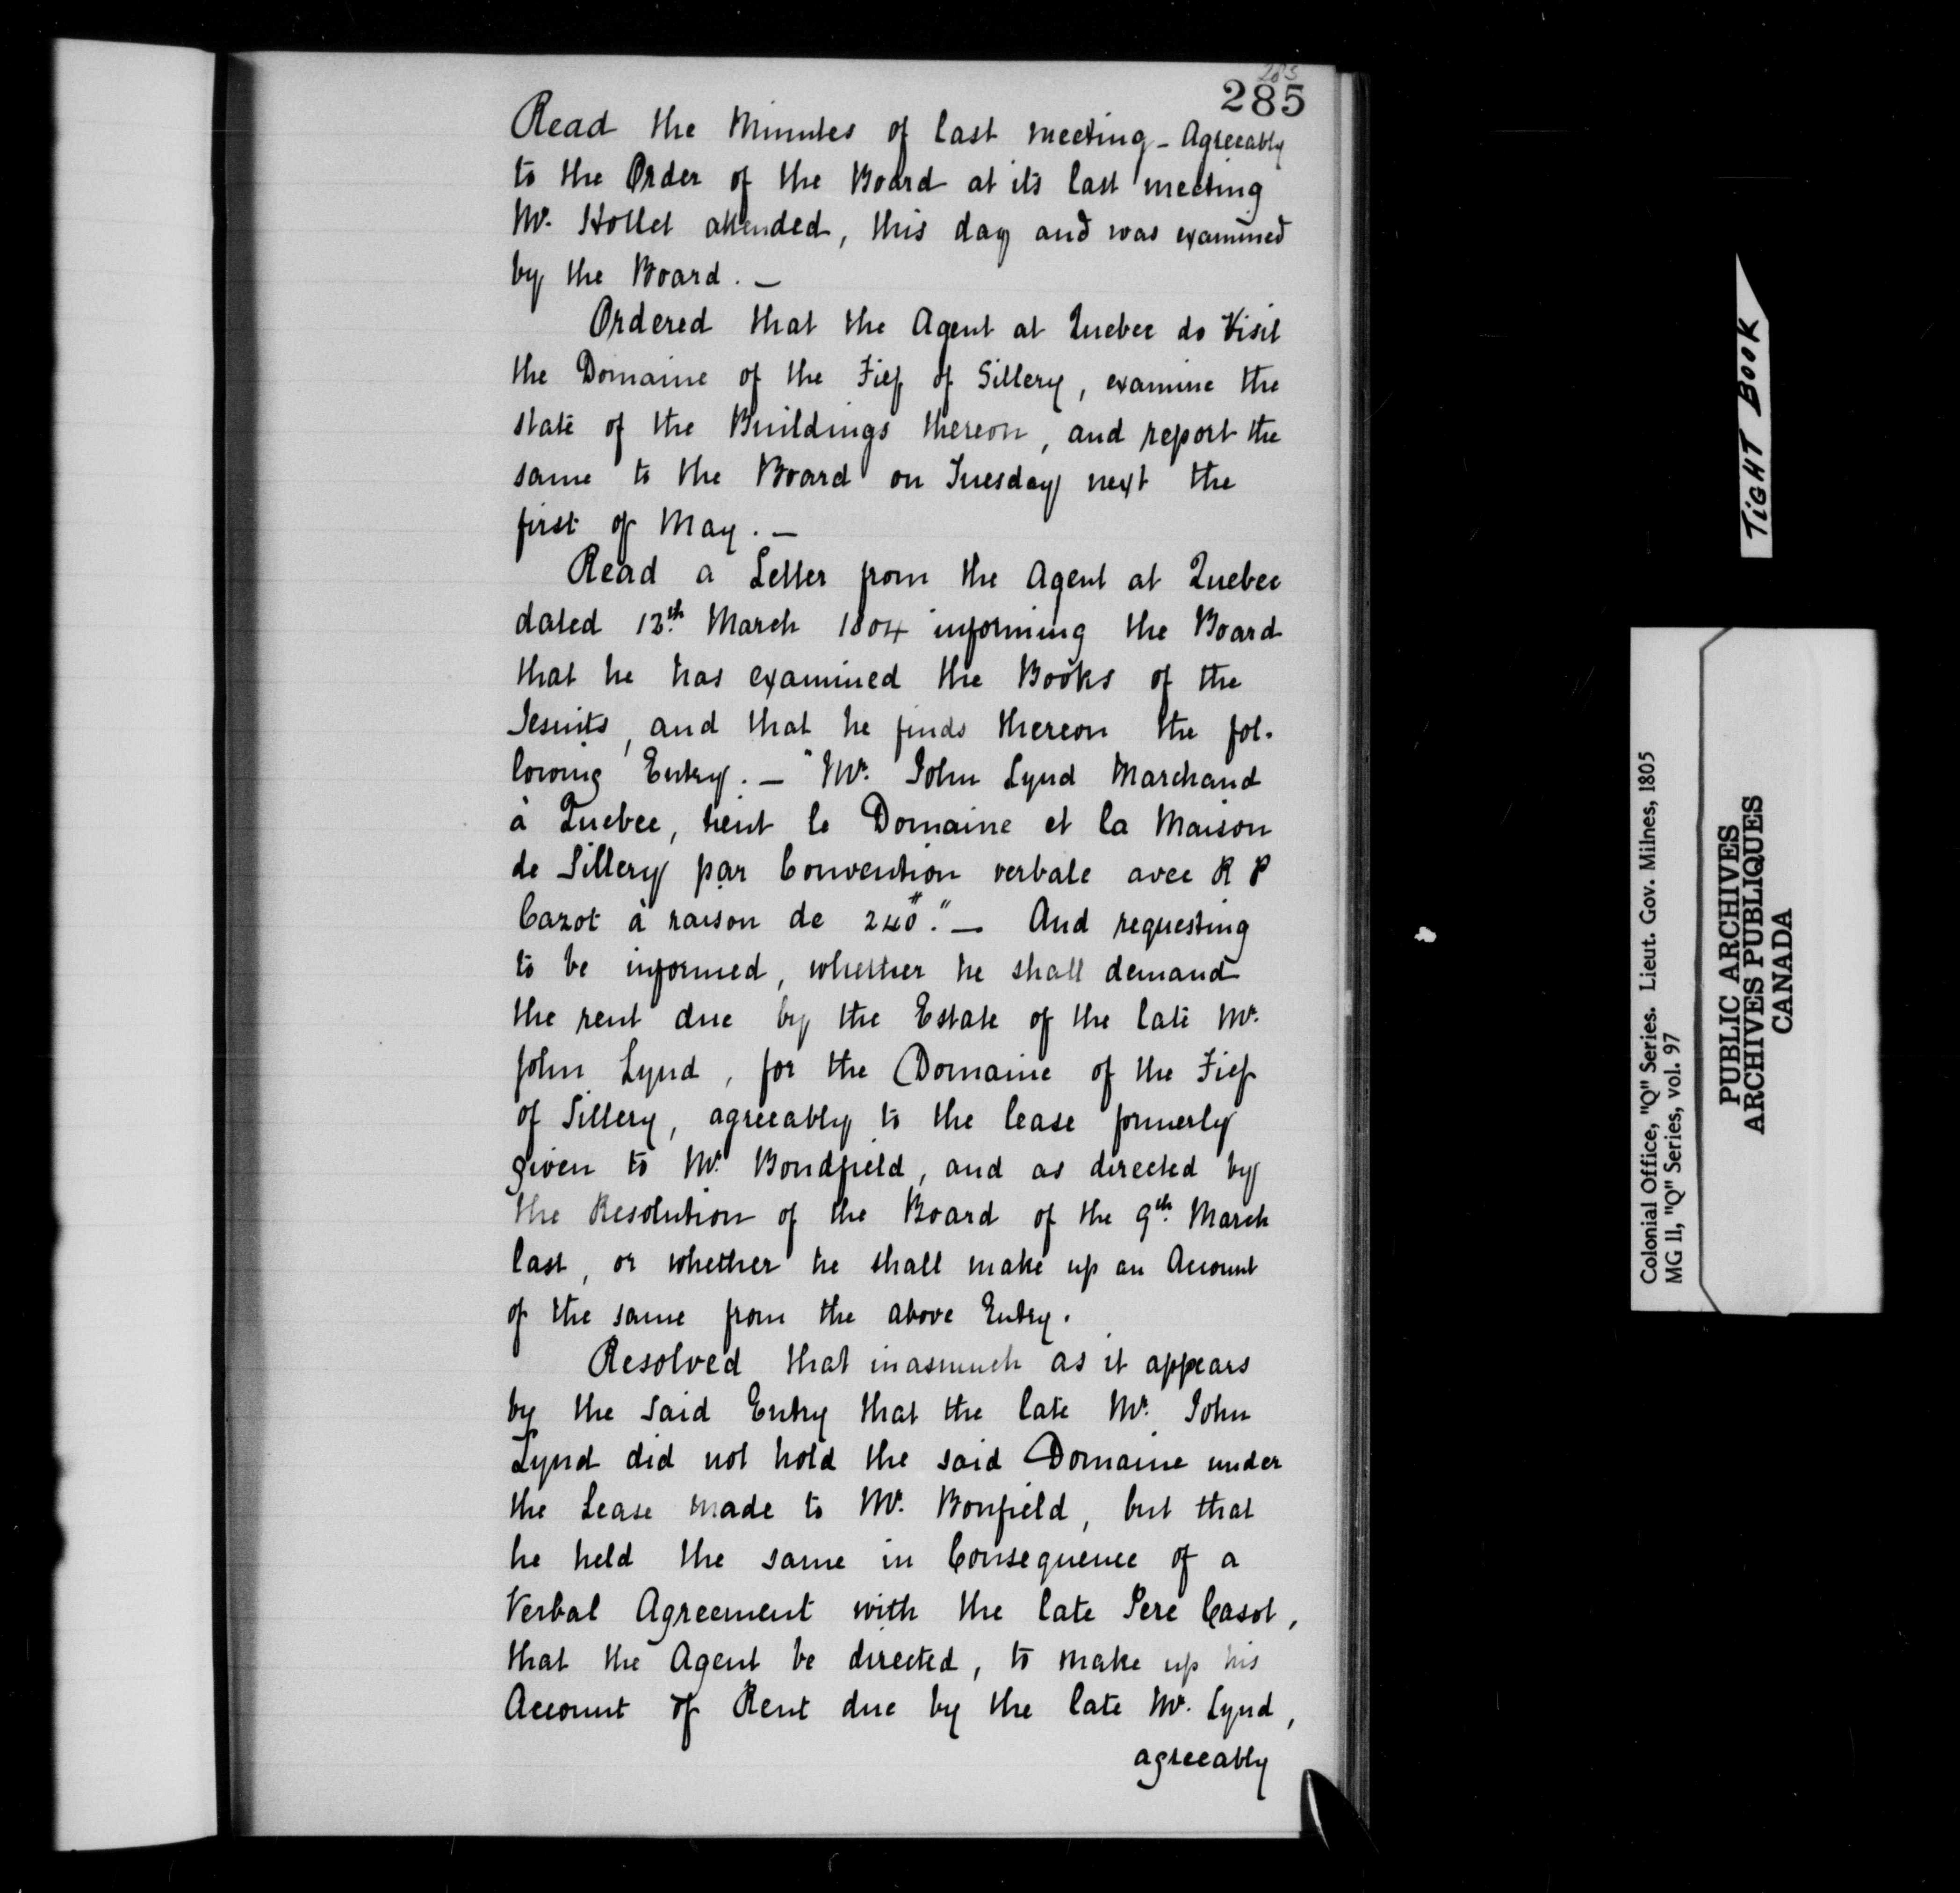 285
285
Read the Minutes of last meeting - Agreeably
to the Order of the Board at its last meeting
Mr. Hollet attended, this day and was examined
by the Board. —
Ordered that the Agent at Quebec do Visit
the Domaine of the Fief of Sillery, examine the
state of the Buildings thereon, and report the
same to the Board on Tuesday next the
first of May. —
Read a Letter from the Agent at Quebec
dated 13th. March 1804 informing the Board
that he has examined the Books of the
Jesuits, and that he finds thereon the fol-
lowing Entry. — "Mr. John Lynd Marchand
à Quebec, tient le Domaine et la Maison
de Sillery par Convention verbale avec R P
Cazot à raison de 240"." — And requesting
to be informed, whether he shall demand
the rent due by the Estate of the late Mr.
John Lynd, for the Domaine of the Fief
of Sillery, agreeably to the lease formerly
given to Mr. Bondfield, and as directed by
the Resolution of the Board of the 9th. March
last, or whether he shall make up an Account
of the same from the above Entry.
Resolved that inasmuch as it appears
by the said Entry that the late Mr. John
Lynd did not hold the said Domaine under
the Lease made to Mr. Bonfield, but that
he held the same in Consequence of a
Verbal Agreement with the late Pere Casot,
that the Agent be directed, to make up his
Account of Rent due by the late Mr. Lynd,
agreeably
TiGHT BOOK
Colonial Office, "Q" Series. Lieut. Gov. Milnes, 1805
MG 11, "Q" Series, vol. 97
PUBLIC ARCHIVES
ARCHIVES PUBLIQUES
CANADA